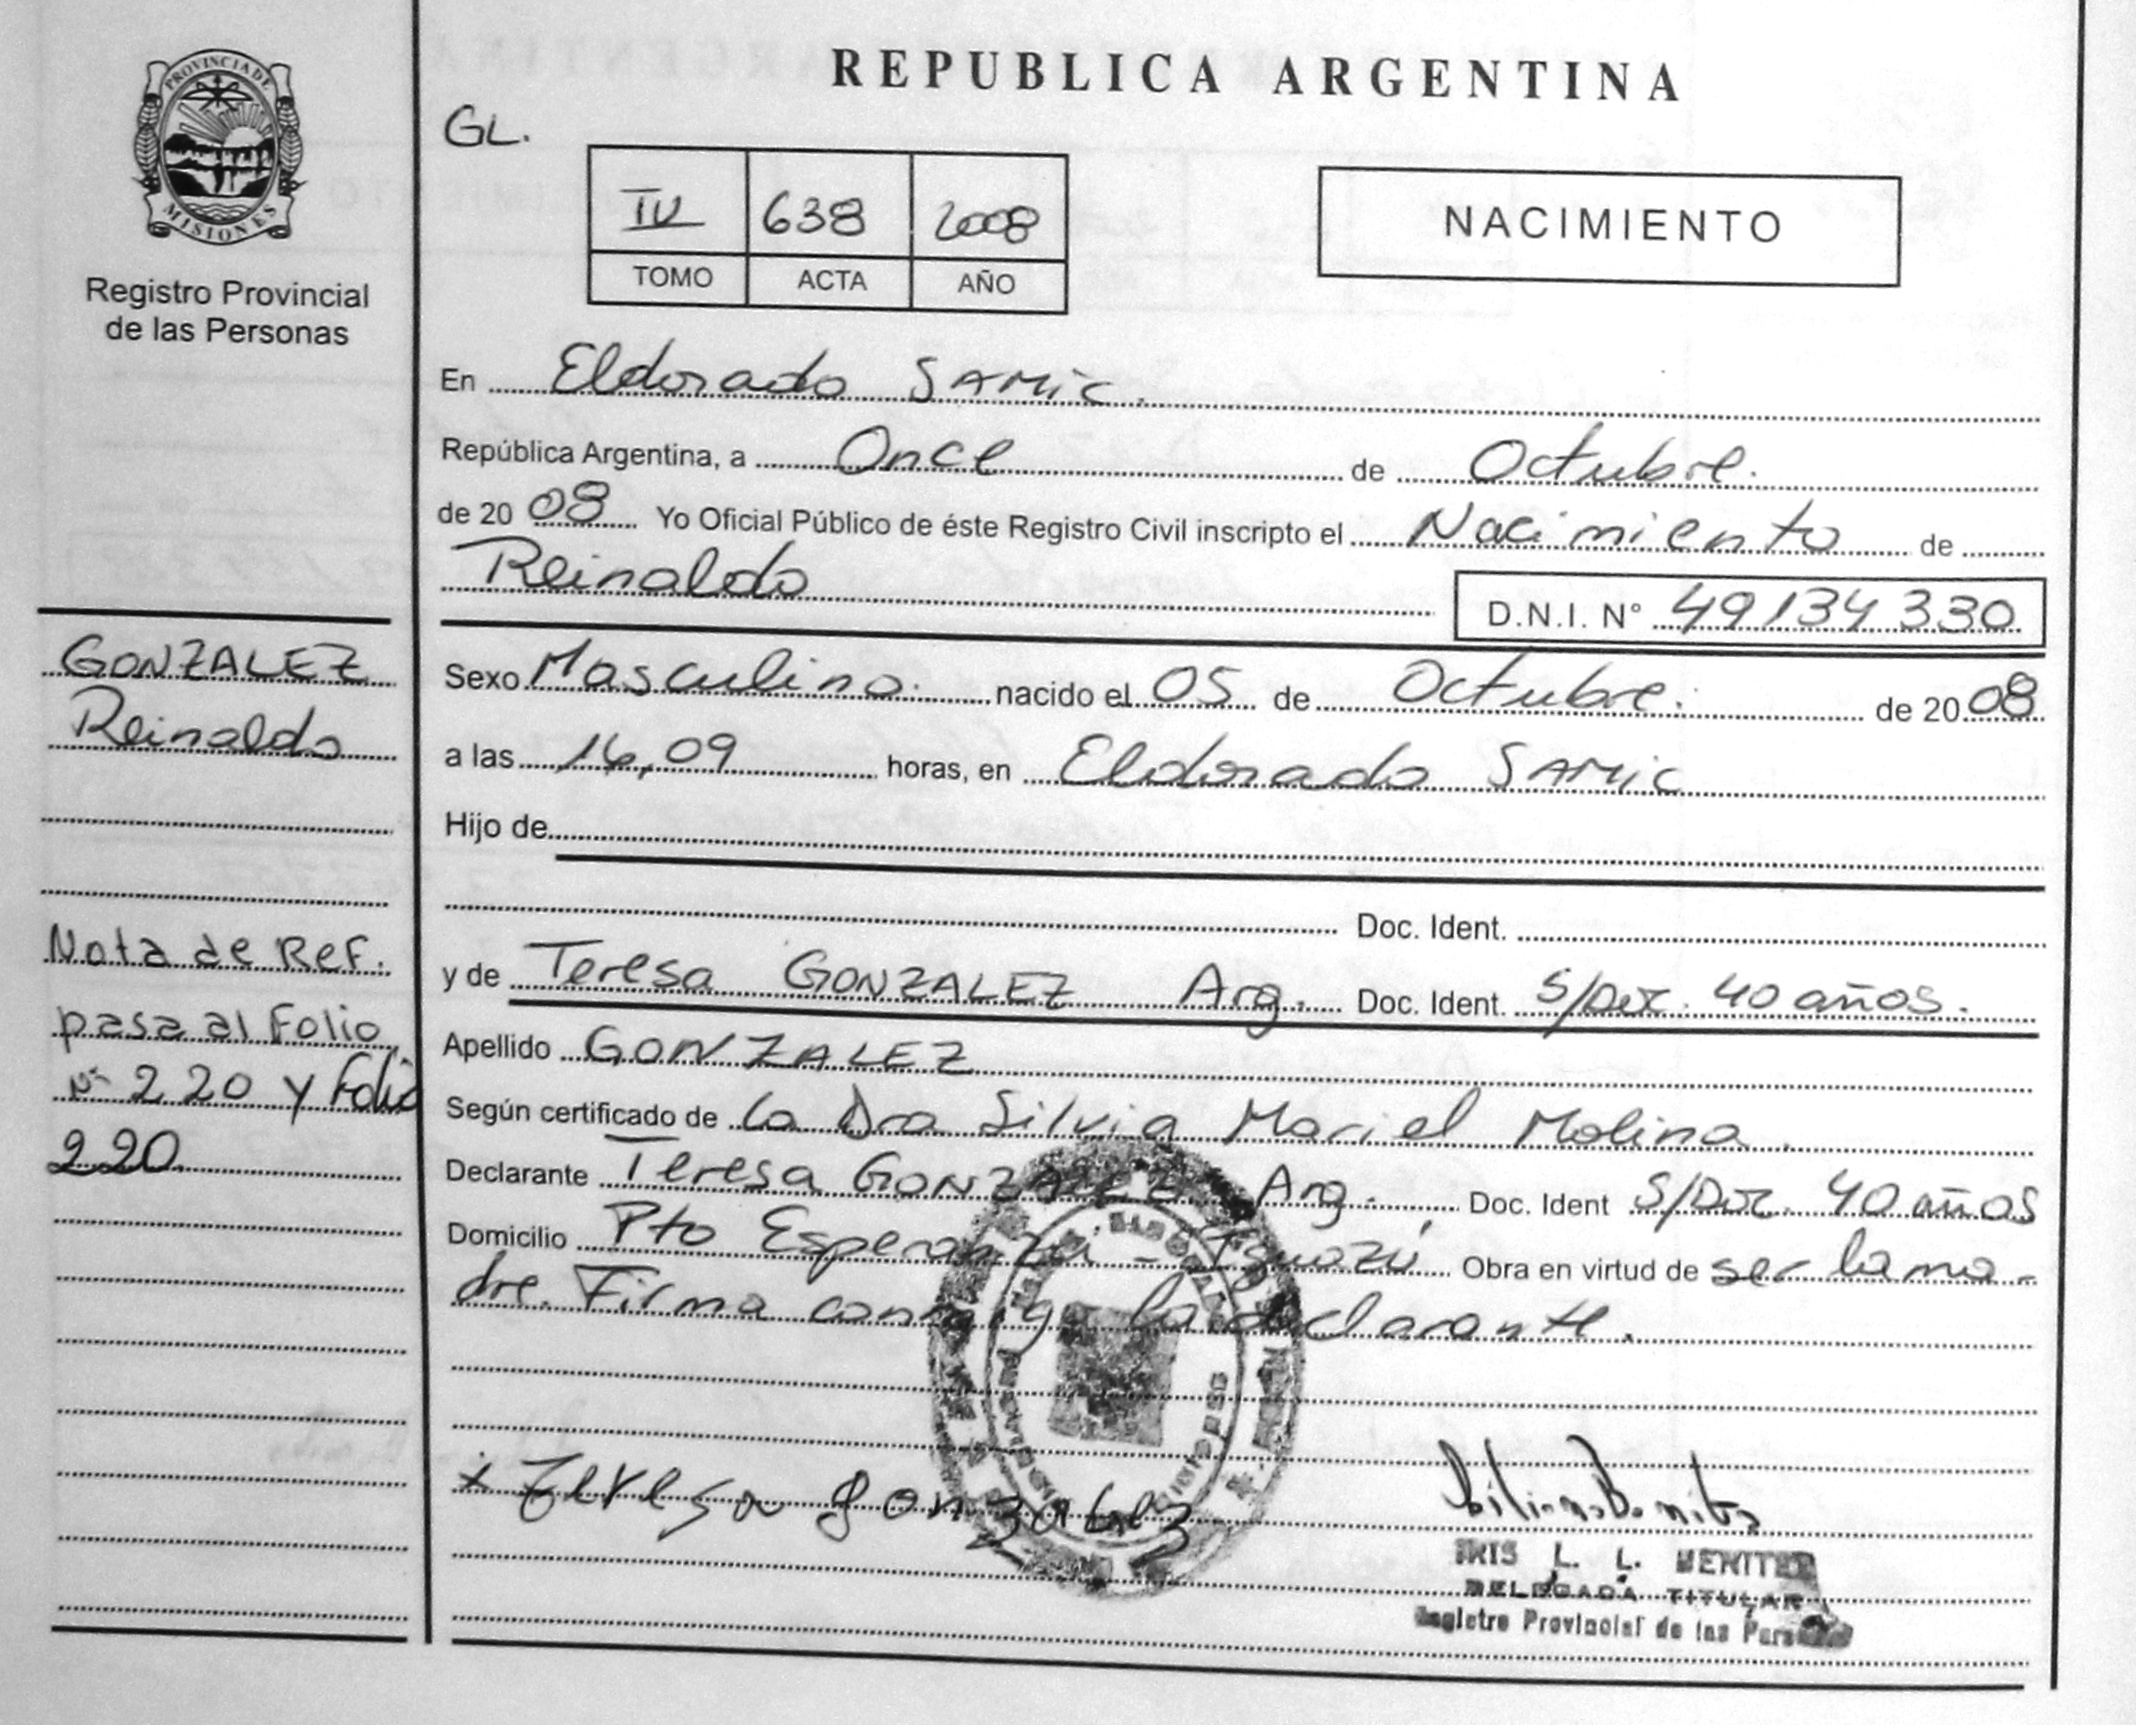 REPUBLICA ARGENTINA
PROVINCIA DE
MISIONES
Registro Provincial
de las Personas
GL.
IV 638 2008
TOMO ACTA AÑO
NACIMIENTO
En Eldorado SAMIC.
República Argentina, a Once de Octubre.
de 2008 Yo Oficial Público de éste Registro Civil inscripto el Nacimiento de
Reinaldo D.N.I. N° 49134330
GONZALEZ
Reinaldo
Nota de Ref.
pasa al Folio
Nº 220 y Folio
220
Sexo Masculino. nacido el 05 de Octubre. de 2008
a las 16,09 horas, en Eldorado SAMIC
Hijo de
Doc. Ident.
y de Teresa GONZALEZ Arg. Doc. Ident. S/Doc. 40 años.
Apellido GONZALEZ
Según certificado de la Dra Silvia Mariel Molina.
Declarante Teresa GONZALEZ Arg. Doc. Ident S/Doc. 40 años
Domicilio Pto Esperanza - Iguazú, Obra en virtud de ser la ma-
dre. Firma conmigo la declarante.
x Teresa gonzalez
IRIS L. L. BENITEZ
DELEGADA TITULAR
Registro Provincial de las Personas